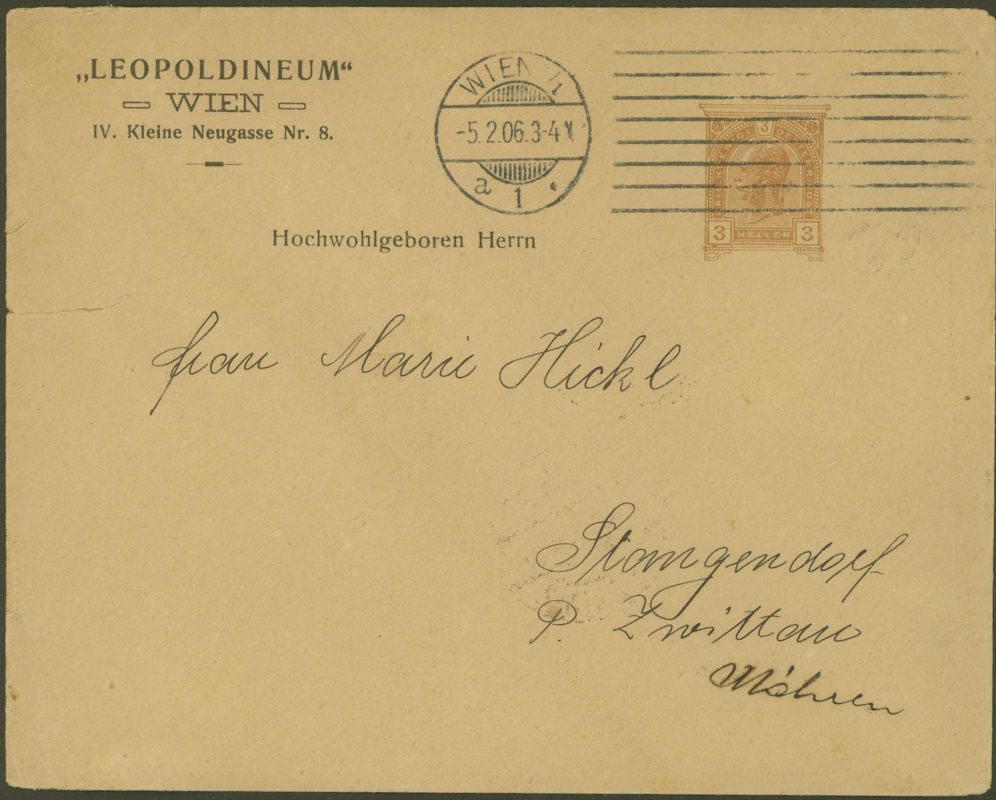 „LEOPOLDINEUM“
WIEN
IV. Kleine Neugasse Nr. 8.
WIEN
-5.2.06.3-4
a 1 *
3
3 HELLER 3
Hochwohlgeboren Herrn
Frau Marie Hickl
Stangendorf
P. Zwittau
Mähren